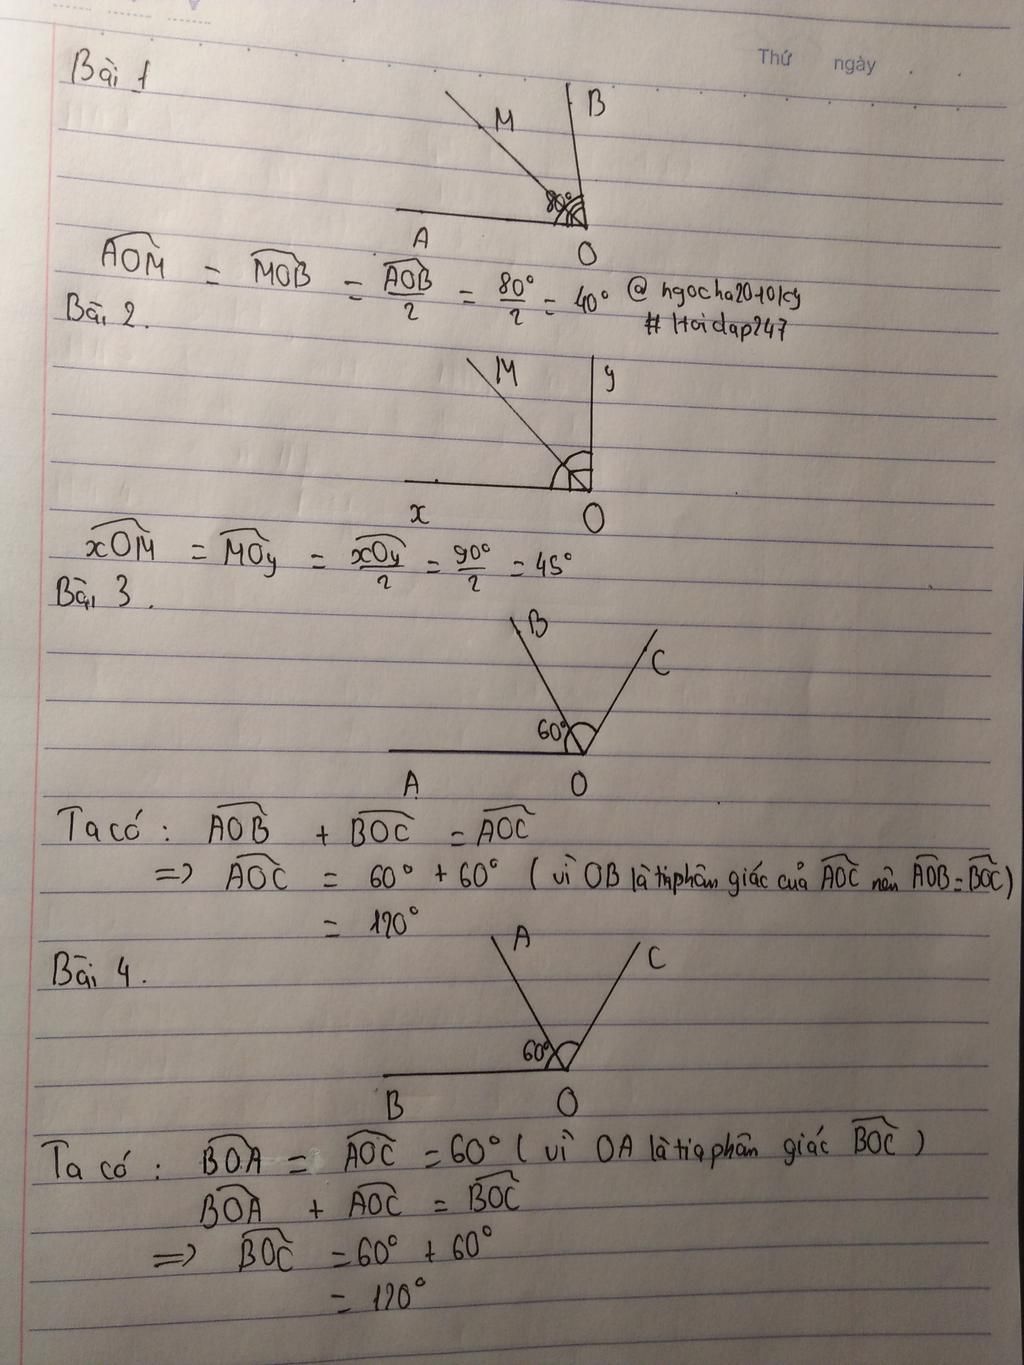 Thứ ngày
Bài 1
M B
80°
A O
AOM = MOB = AOB/2 = 80°/2 = 40° @ngocha2010lcy
#Hoidap247
Bài 2.
M y
x O
xOM = MOy = xOy/2 = 90°/2 = 45°
Bài 3.
B
C
60°
A O
Ta có: AOB + BOC = AOC
=> AOC = 60° + 60° (vì OB là tia phân giác của AOC nên AOB = BOC)
= 120°
Bài 4.
A
C
60°
B O
Ta có: BOA = AOC = 60° (vì OA là tia phân giác BOC)
BOA + AOC = BOC
=> BOC = 60° + 60°
= 120°